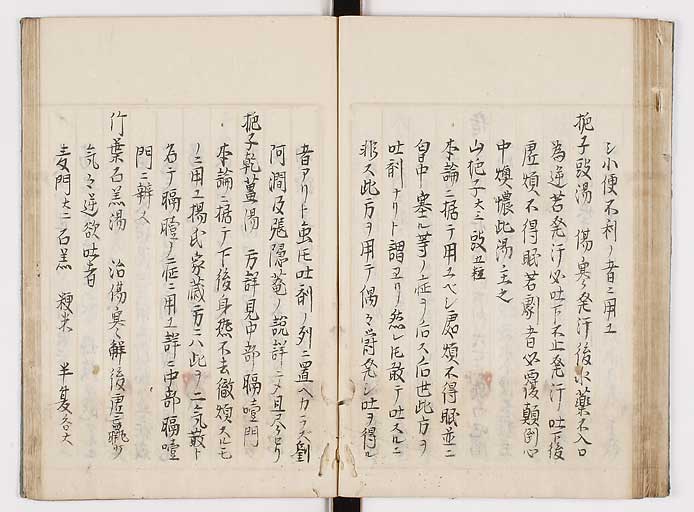 シ小便不利ノ者ニ用ユ
梔子豉湯 傷寒発汗後水藥不入口
為逆若発汗必吐下不止発汗ノ吐下後
虚煩不得眠若劇者必覆顛倒心
中煩憹此湯主之
山梔子大三 豉五粒
本論ニ据テ用ユベシ虚煩不得眠並ニ
胸中塞ル等ノ症ヲ后ス后世此方ヲ
吐剤ナリト謂ヱリ然レ𪜈敢テ吐スルニ
非ス此方ヲ用テ偶々欝発シ吐ヲ得ル
者アリト虽𪜈吐剤ノ列ニ置ヘカラズ劉
河澗及張隠菴ノ説詳ニメ
梔子乾薑湯 方詳見中部膈噎門
本論ニ据テ下後身熱不去微煩スルモ
ノニ用ユ楊氏家藏方ニハ此ヲ二氣散ト
名テ膈噎ノ症ニ用ユ詳ニ中部膈噎
門ニ辨ス
竹葉石羔湯 治傷寒解後虚羸少
氣々逆欲吐者
麦門大二 石羔 粳米 半夏各大